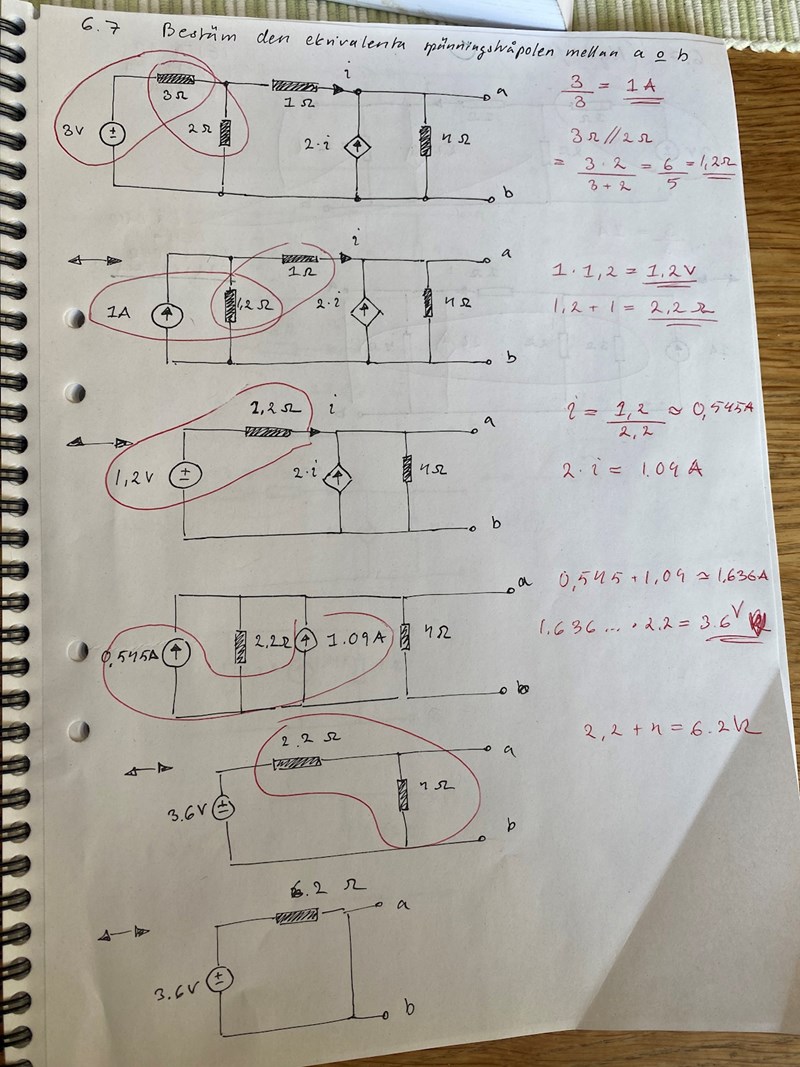 6.7 Bestäm den ekvivalenta spänningstvåpolen mellan a o b
3Ω
1Ω
i
a
3V
2Ω
2·i
4Ω
b
3/3 = 1A
3Ω//2Ω
= 3·2/3+2 = 6/5 = 1,2Ω
i
a
1Ω
1A
1,2Ω
2·i
4Ω
b
1·1,2 = 1,2V
1,2+1 = 2,2Ω
1,2Ω
i
a
1,2V
2·i
4Ω
b
i = 1,2/2,2 ≈ 0,545A
2·i = 1.09A
a
0,545A
2.2Ω
1.09A
4Ω
b
0,545+1,09 ≈ 1,636A
1.636...·2.2 = 3.6V
2.2Ω
a
3.6V
4Ω
b
2,2+4 = 6.2Ω
6.2Ω
a
3.6V
b